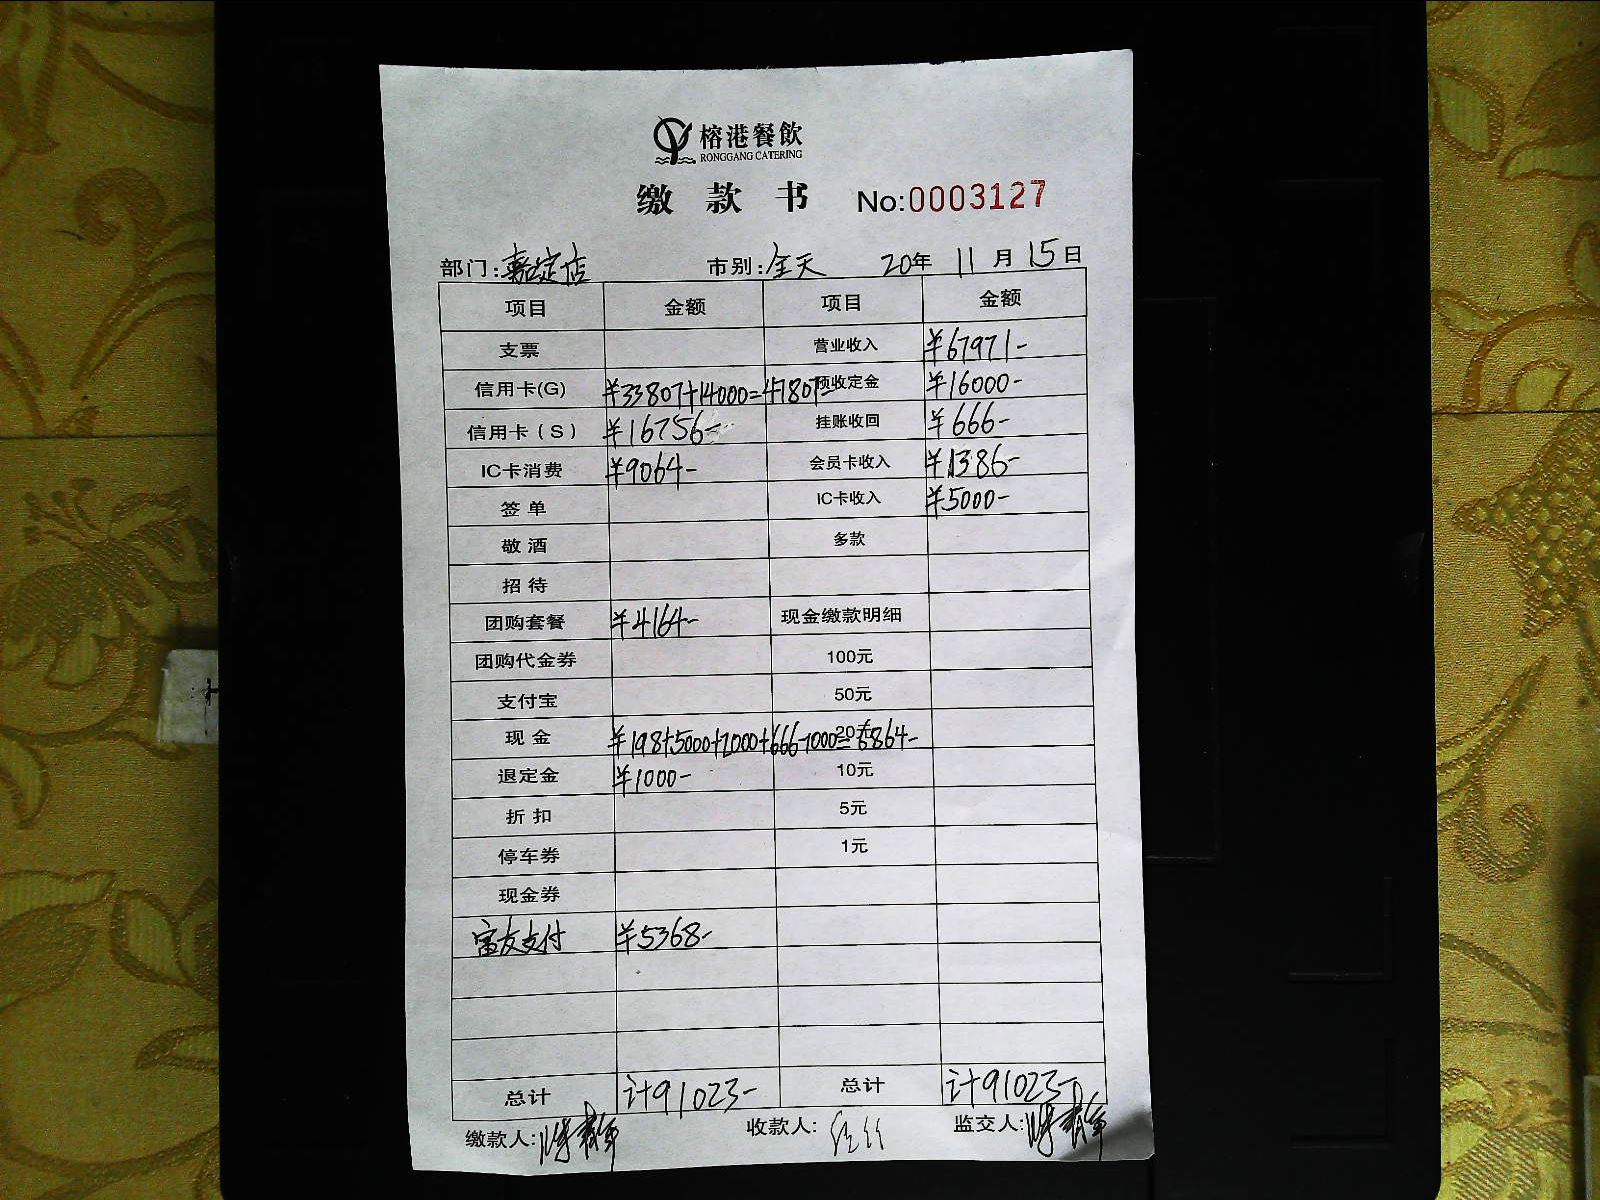 榕港餐飲
RONGGANG CATERING
缴款书 No:0003127
部门:嘉定店 市别:全天 20年 11月 15日
项目 金额 项目 金额
支票 营业收入 ¥67971-
信用卡(G) ¥33807+14000=47807- 预收定金 ¥16000-
信用卡(S) ¥16756- 挂账收回 ¥666-
IC卡消费 ¥9064- 会员卡收入 ¥1386-
签单 IC卡收入 ¥5000-
敬酒 多款
招待
团购套餐 ¥4164- 现金缴款明细
团购代金券 100元
支付宝 50元
现金 ¥198+5000+2000+666-1000=6864- 20元
退定金 ¥1000- 10元
折扣 5元
停车券 1元
现金券
富友支付 ¥5368-
总计 计91023- 总计 计91023-
缴款人: 收款人: 监交人: